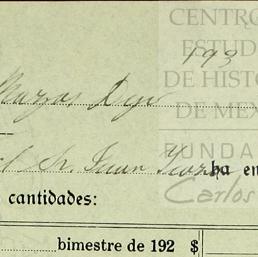 CENTRO
ESTUD
DE HISTO
DE MEX
193
FUNDA
Sr. Juan
ha en
Carlos
cantidades:
bimestre de 192 $